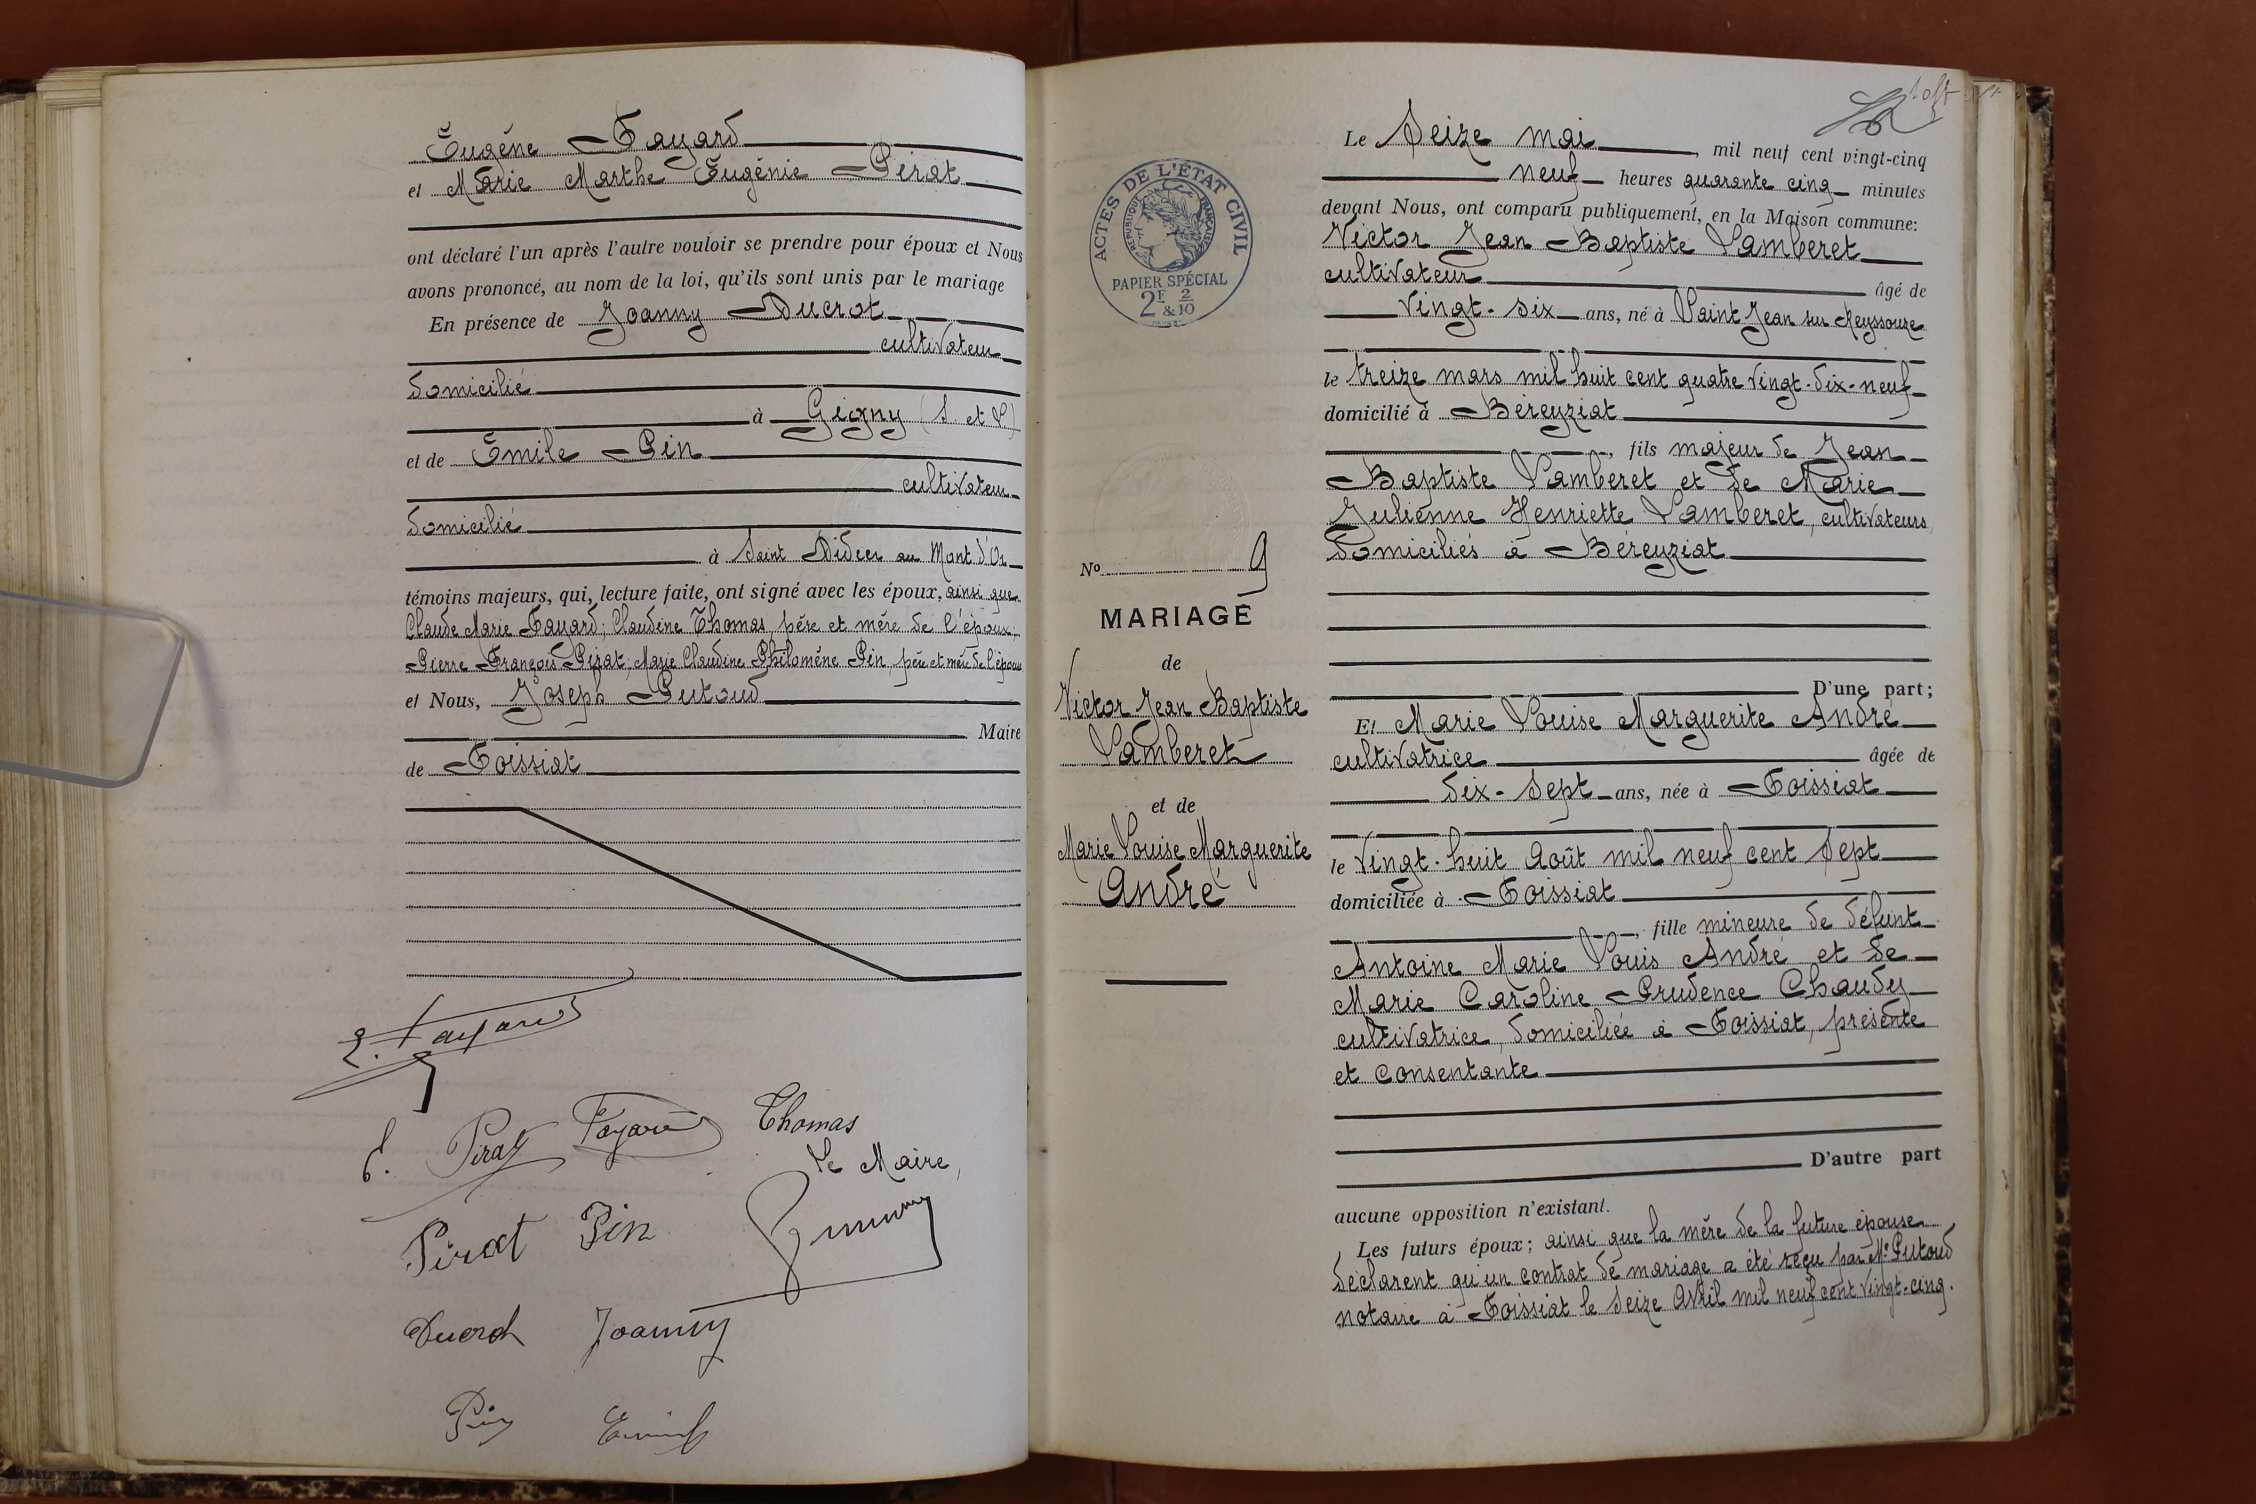 Eugène Fayard
et Marie Marthe Eugénie Pirat
ont déclaré l'un après l'autre vouloir se prendre pour époux et Nous
avons prononcé, au nom de la loi, qu'ils sont unis par le mariage
En présence de Joanny Ducrot
cultivateur
domicilié
à Gigny (S. et L)
et de Emile Pin
cultivateur
domicilié
à Saint Didier au Mont d'Or
témoins majeurs, qui, lecture faite, ont signé avec les époux, ainsi que
Claude Marie Fayard; Claudine Thomas, père et mère de l'époux;
Pierre François Pirat, Marie Claudine Philomène Pin, père et mère de l'épouse
et Nous, Joseph Putoud
Maire
de Foissiat
E. Fayard
E. Pirat Fayard Thomas
Le Maire,
Pirat Pin
Ducrot Joanny
Pin Emile
Le Seize mai, mil neuf cent vingt-cinq
neuf heures quarante cinq minutes
devant Nous, ont comparu publiquement, en la Maison commune:
Victor Jean Baptiste Lamberet
cultivateur âgé de
vingt-six ans, né à Saint Jean sur Reyssouze
le treize mars mil huit cent quatre vingt-dix-neuf
domicilié à Béreyziat
, fils majeur de Jean
Baptiste Lamberet et de Marie
Julienne Henriette Lamberet, cultivateurs
domiciliés à Béreyziat
D'une part;
Et Marie Louise Marguerite André
cultivatrice âgée de
dix-sept ans, née à Foissiat
le vingt-huit Août mil neuf cent sept
domiciliée à Foissiat
, fille mineure de défunt
Antoine Marie Louis André et de
Marie Caroline Prudence Chaudy
cultivatrice, domiciliée à Foissiat, présente
et consentante
D'autre part
aucune opposition n'existant.
Les futurs époux; ainsi que la mère de la future épouse
déclarent qu'un contrat de mariage a été reçu par Me Putoud
notaire à Foissiat le seize Avril mil neuf cent vingt-cinq.
ACTES DE L'ÉTAT CIVIL
RÉPUBLIQUE FRANÇAISE
PAPIER SPÉCIAL
2F & 2/10
No 9
MARIAGE
de
Victor Jean Baptiste
Lamberet
et de
Marie Louise Marguerite
André